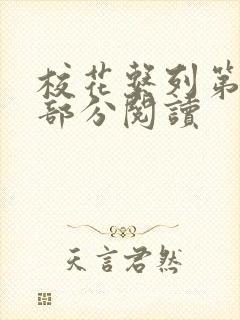 校花系列第
部分閱讀
天言君然